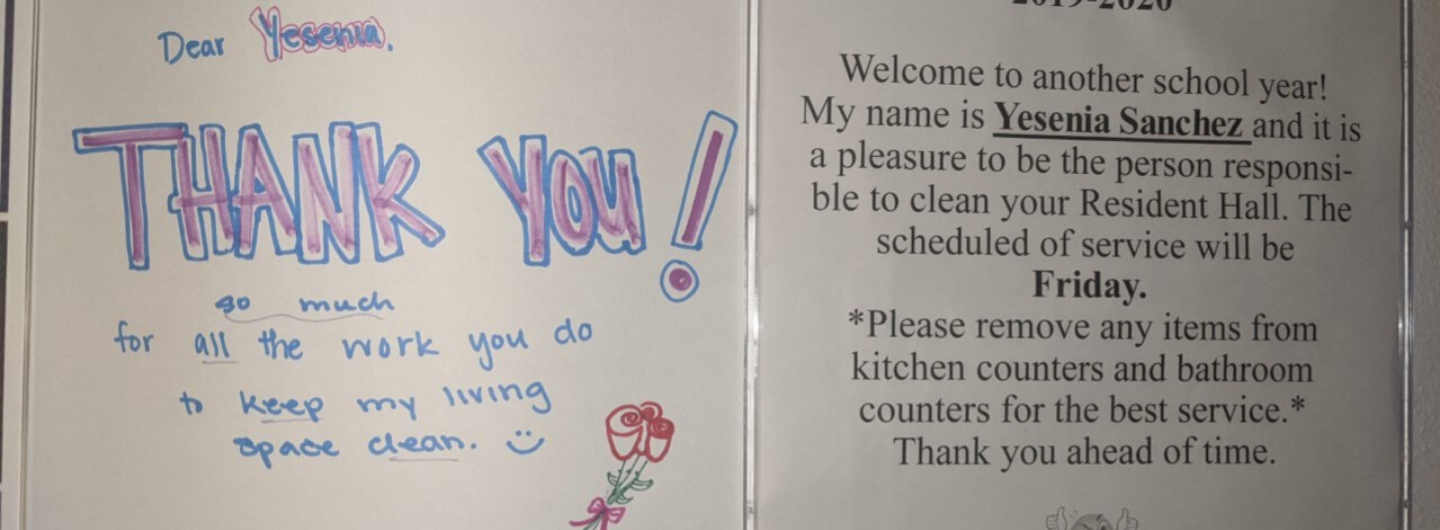 Dear Yesenia,
THANK YOU!
so much
for all the work you do
to keep my living
space clean. :)
2019-2020
Welcome to another school year!
My name is Yesenia Sanchez and it is
a pleasure to be the person responsi-
ble to clean your Resident Hall. The
scheduled of service will be
Friday.
*Please remove any items from
kitchen counters and bathroom
counters for the best service.*
Thank you ahead of time.